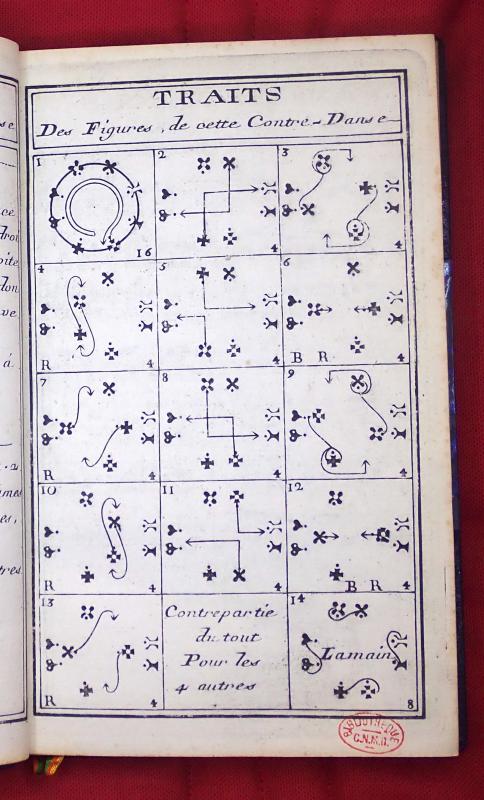 TRAITS
Des Figures, de cette Contre-Danse
1
16
2
4
3
4
4
R
4
5
4
6
B R
4
7
R
4
8
4
9
4
10
R
4
11
4
12
B R
4
13
R
4
Contrepartie
du tout
Pour les
4 autres
14
Lamain
8
BIBLIOTHEQUE
C.N.M.D.